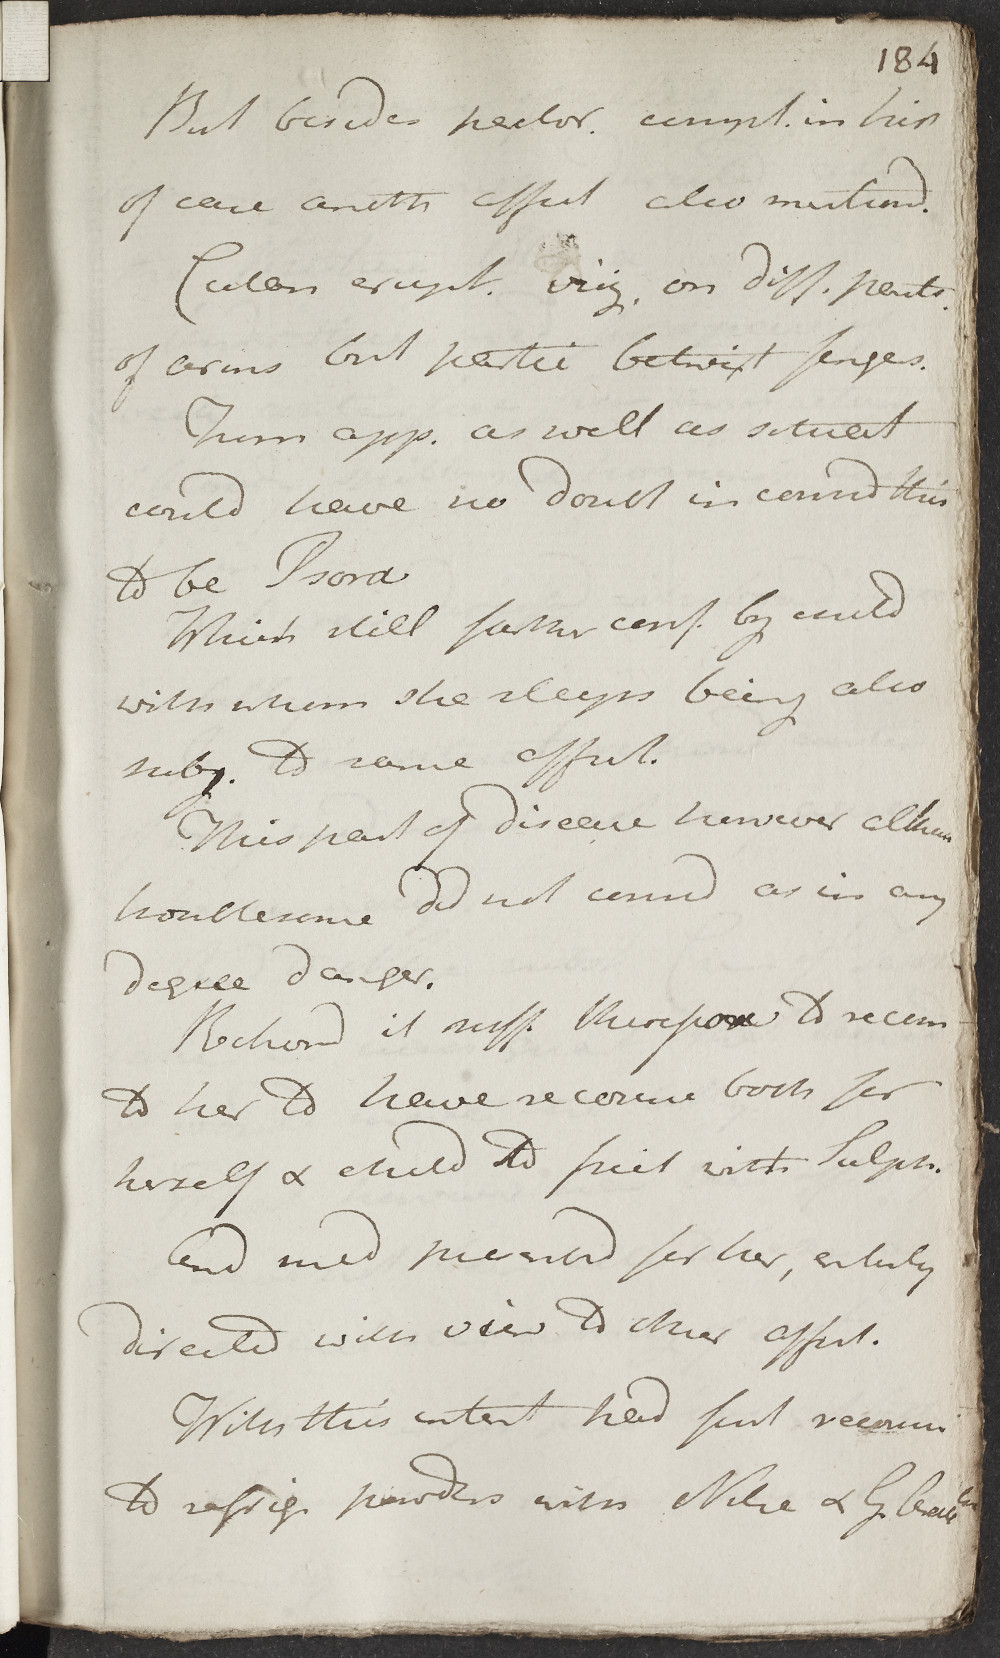 184
But besides pector. compl. in hist
of case anoth affect also mentiond.
Cutan erupt. viz. on diff. parts.
of arms but partic betwixt finges.
From app. as well as situat
could have no doubt in consid this
to be Psora
Which still farther conf. by child
with whom she sleeps being also
subj. to same affect.
This part of disease however altho
troublesome did not consid as in any
degree danger.
Reckond it suff. therefore to recom
to her to have recourse both for
herself & child to frict with Sulph.
And med prescribd for her, entirely
directed with view to other affect.
With this intent had first recour
to refrig powders with Nitre &